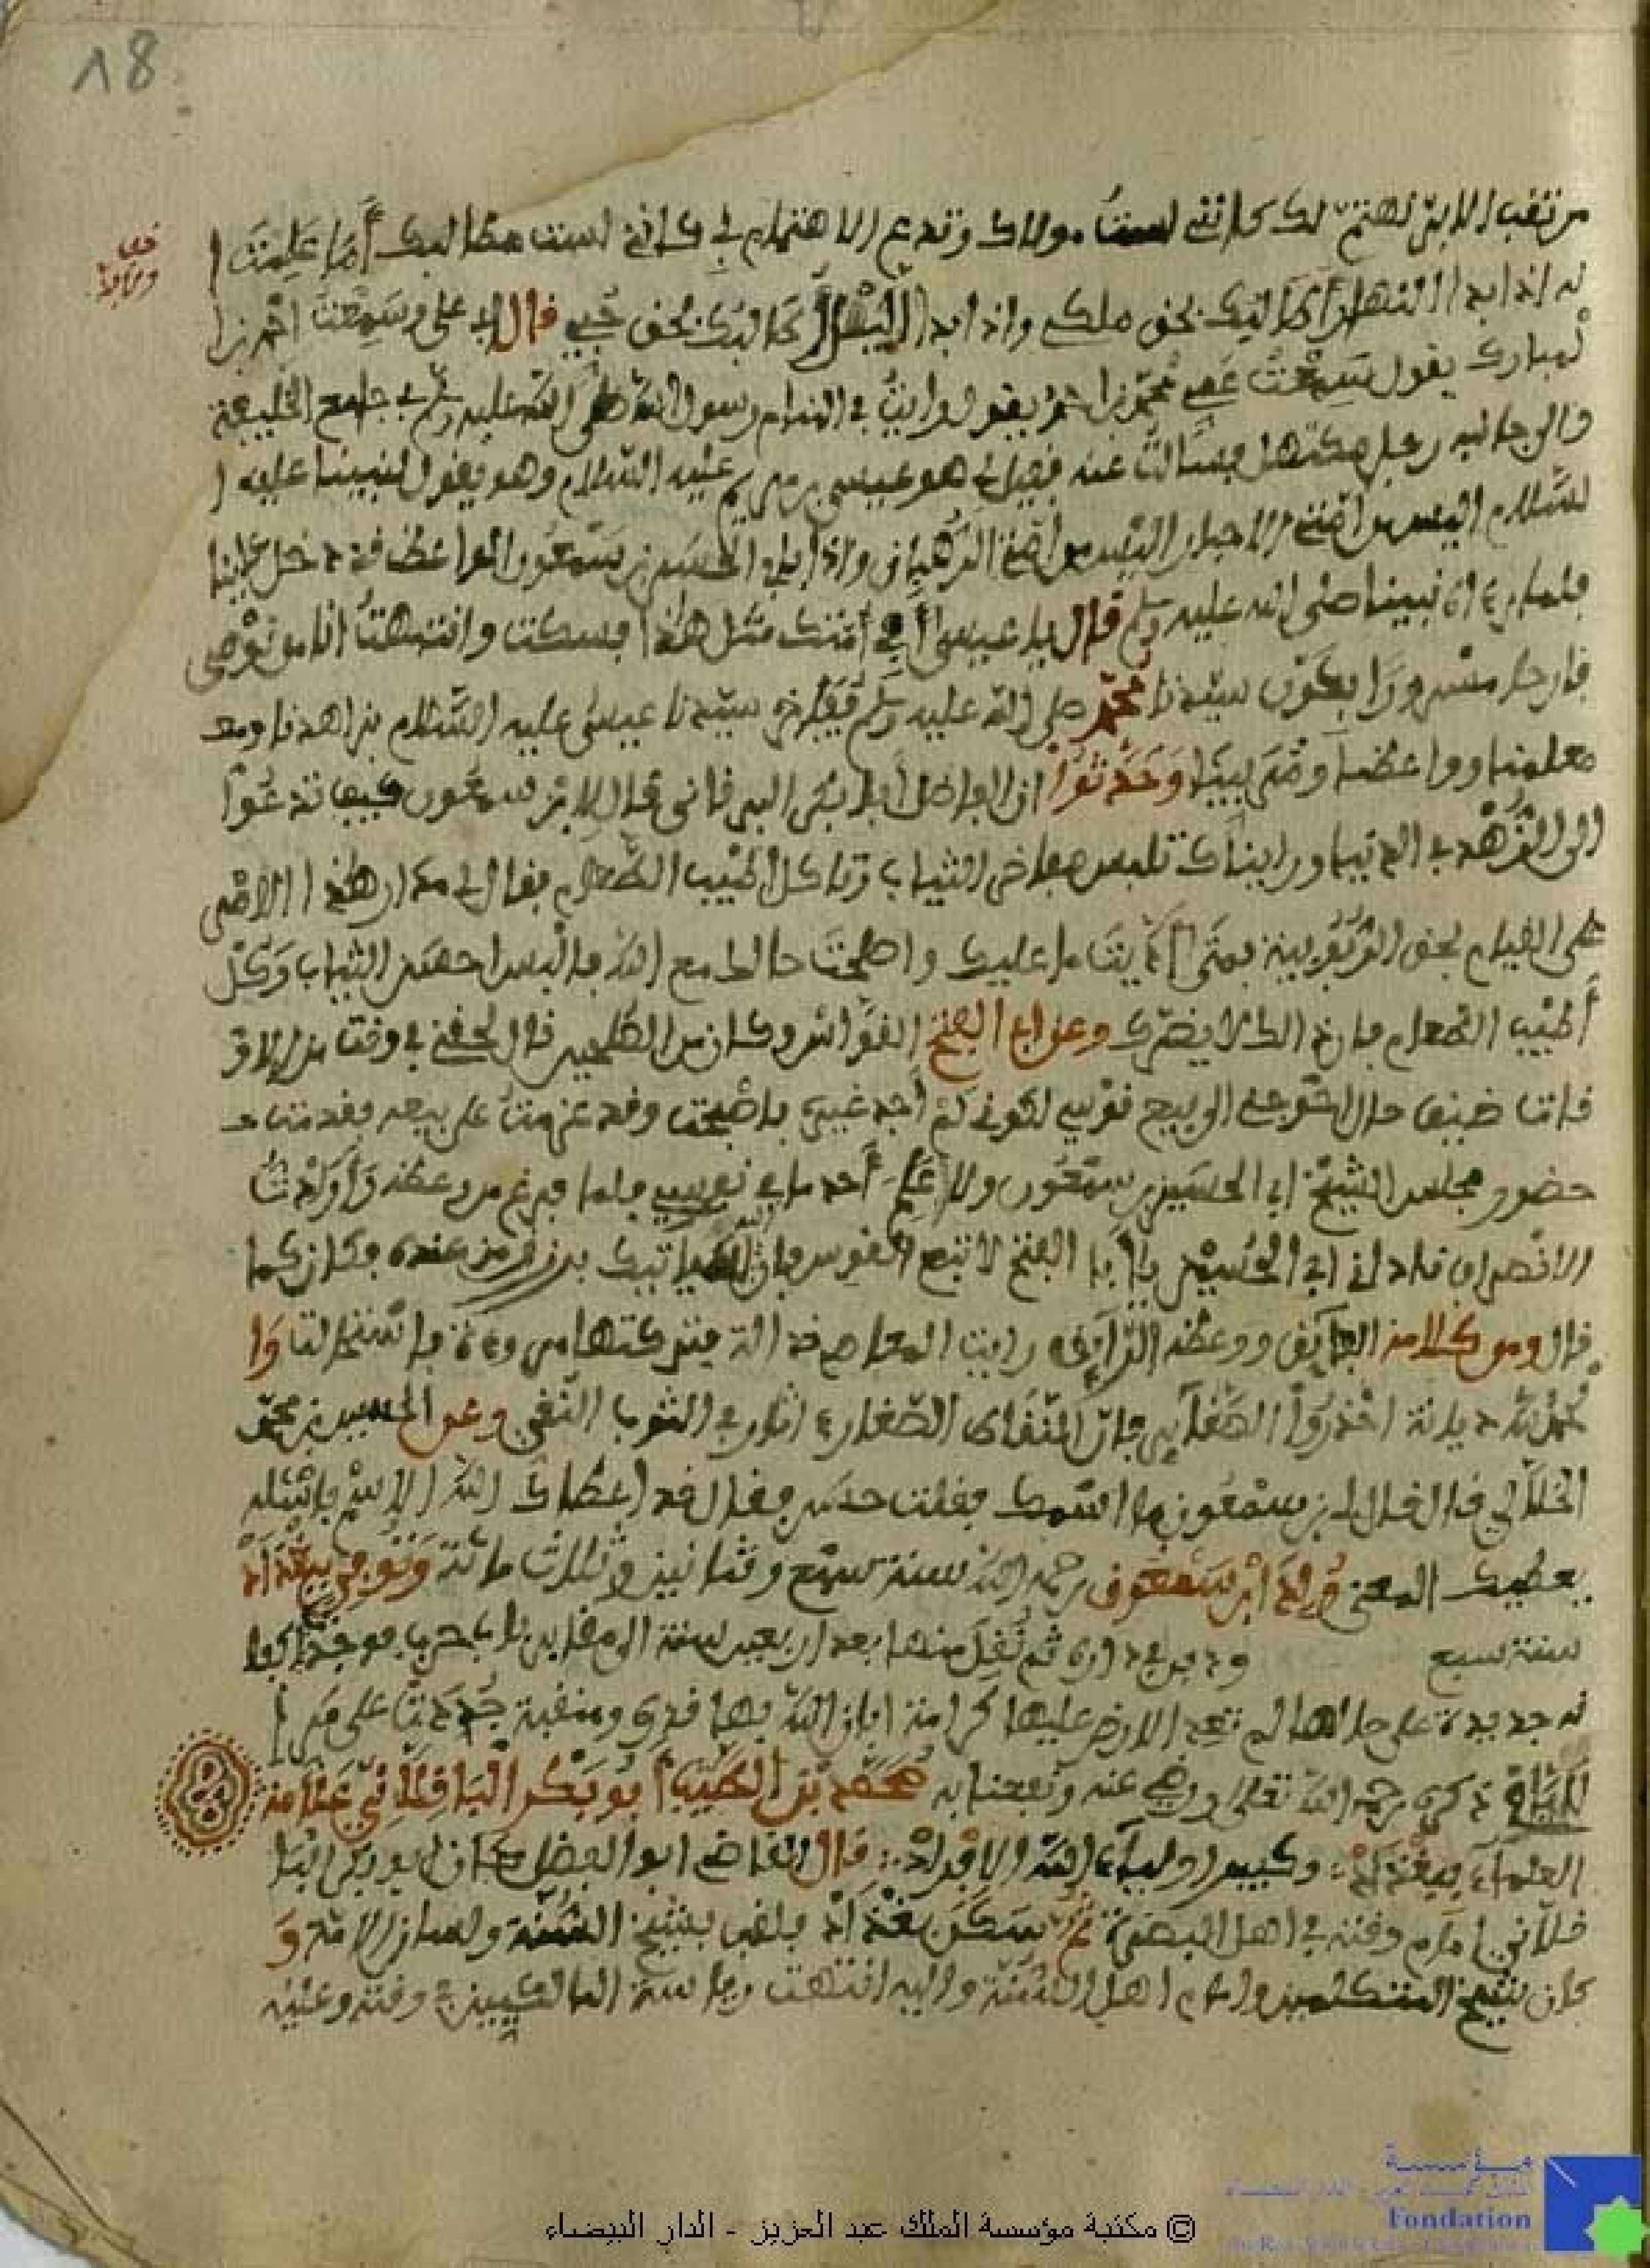 18
من تغب الابن تهتم لك كانني لست مولاك وتدع الاهتمام لي كاني لست مطالبك أما علمت ا
نه اذا بدا النهار اطالبك بحق ملكي واذا بدا الليل اطالبك بحق حبي قال ابو علي وسمعت احمد بن ا
لمبارك يقول سمعت عمي محمد بن احمد يقول رايت في المنام رسول الله صلى الله عليه وسلم في جامع الخليفة
والى جانبه رجل مكتهل فسالت عنه فقيل لي هو عيسى بن مريم عليه السلام وهو يقول لنبينا عليه ا
لسلام اليس من امتي الاحبار اليس من امتي الرهبان واذا بابي الحسين بن سمعون الواعظ قد دخل علينا
فلما رءاه نبينا صلى الله عليه وسلم قال يا عيسى أفي أمتك مثل هذا فسكت وانتبهت انا من نومي
فارحا مسرورا بكون سيدنا محمد صلى الله عليه وسلم سيدنا عيسى عليه السلام بزاهدنا ومعد
معلمنا وواعظنا وحدثوا ان الفاضل أبا بكر البرقاني قال لابن سمعون كيف تدعوا
الى الزهد في الدنيا ورايناك تلبس فاخر الثياب وتاكل أطيب الطعام فقال لي مدار هذا الامر
على القيام بحق الربوبية فمتى اديت ما عليك واصلحت حالك مع الله فالبس احسن الثياب وكل
أطيب الطعام فان ذالك لا يضرك وعن ابي الفتح القواس وكان من الصالحين قال لحقني في وقت من الاو
قات ضيق حال احوجني الى بيع قوسي لكوني لم أجد غيره فاصبحت وقد عزمت على بيعه وقدمت
حضور مجلس الشيخ ابي الحسين بن سمعون ولا علم أحد ما في نفسي فلما فرغ من وعظه وأردت
الانصراف ناداني ابي الحسين يا أبا الفتح لا تبع القوس فان الله ياتيك برزق من عنده فكان كما
قال ومن كلامه الفائق ووعظه الرائق رايت المعاصي نذالة فتركتها مروءة فاستحالت وا
لحمد لله ديانة احذروا الصغاير فان النقط الصغار ءاثار في الثوب النقي وعن الحسين بن محمد
الخلال قال قال لي بن سمعون ما اسمك فقلت حسن فقال قد اعطاك الله الاسم فاسئله
يعطيك المعنى ولد ابن سمعون رحمه الله سنة سبع وثمانين وثلاث مائة وتوفي ببغداد
سنة سبع ودفن في داره ثم نقل منها بعد اربعين سنة الى مقابر باب حرب فوجدت اكفا
نه جديدة على حالها لم تعد الارض عليها كرامة ابان الله بها قدره ومنقبة جددت على مر ا
لليالي ذكره رحمه الله تعالى ورضي عنه ونفعنا به محمد بن الطيب أبو بكر الباقلاني علامة
العلماء ببغداد وكبير اولياء الله الافراد قال القاضي ابو الفضل كان ابو بكر البا
قلاني امام وقته في اهل البصرة ثم سكن بغداد يلقب بشيخ السنة ولسان الامة و
كان شيخ المتكلمين وامام اهل السنة واليه انتهت رياسة المالكيين في وقته وعينه
© مكتبة مؤسسة الملك عبد العزيز - الدار البيضاء
مؤسسة
Fondation